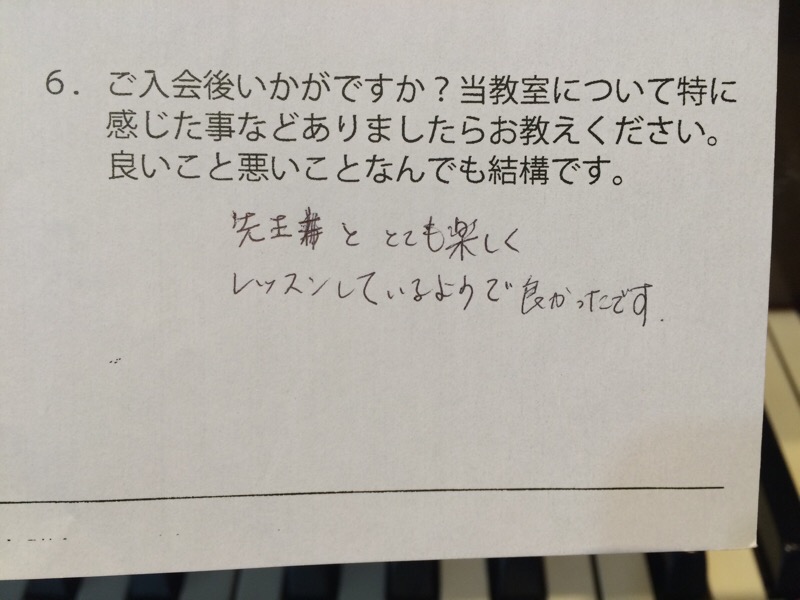 6. ご入会後いかがですか？当教室について特に
感じた事などありましたらお教えください。
良いこと悪いことなんでも結構です。
先生と とても楽しく
レッスンしているようで良かったです.